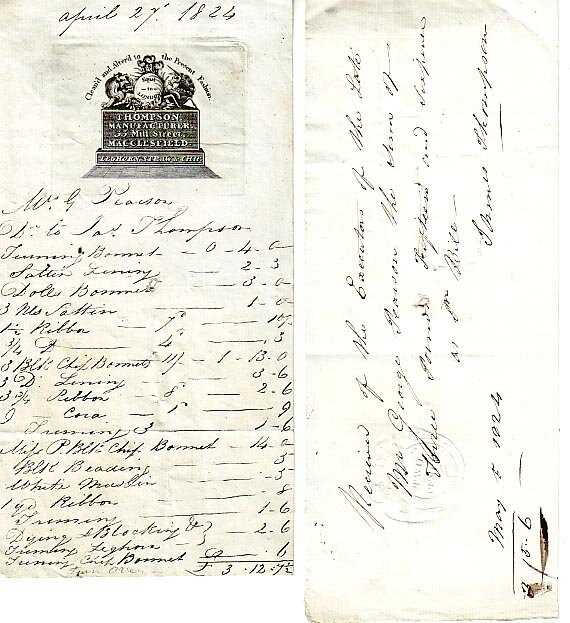 april 27th 1824
Clean'd and Alter'd to the Present Fashion.
Equal
to
THOMPSON,
MANUFACTURER,
33 Mill Street,
MACCLESFIELD
LEGHORN, STRAW & CHIP
Mr. G Pearson
Dr. to Jas. Thompson
Triming Bonnet - 0 - 4 - 0
Sattin Lining - 2 - 3
Dolls Bonnet - 3 - 0
3 Nls Sattin - 1 - 0
1½ Ribbon - 7d - 10½
¾ Do - 4d - 3
3 Blk Chip Bonnets 11/- 1 - 13 - 0
3 Do Lining - 3 - 6
3¾ Ribbon - 8d - 2 - 6
9 - 1d - 9
Triming 3 - 1 - 6
Miss P. Blk Chip Bonnet - 14 - 0
Blk Beading
White Muslin
1 yd Ribbon - 8
Triming - 1 - 6
Dying & Blocking & } - 2 - 6
Triming Leghorn }
Triming Chip Bonnet - 6
£ 3 - 12 - 7½
Turn Over
Received of the Executors of the Late
Mr George Pearson the Sum of
Three Pounds Fifteen and Sixpence
as Pr Bill
James Thompson
May 5 1824
3 15 - 6